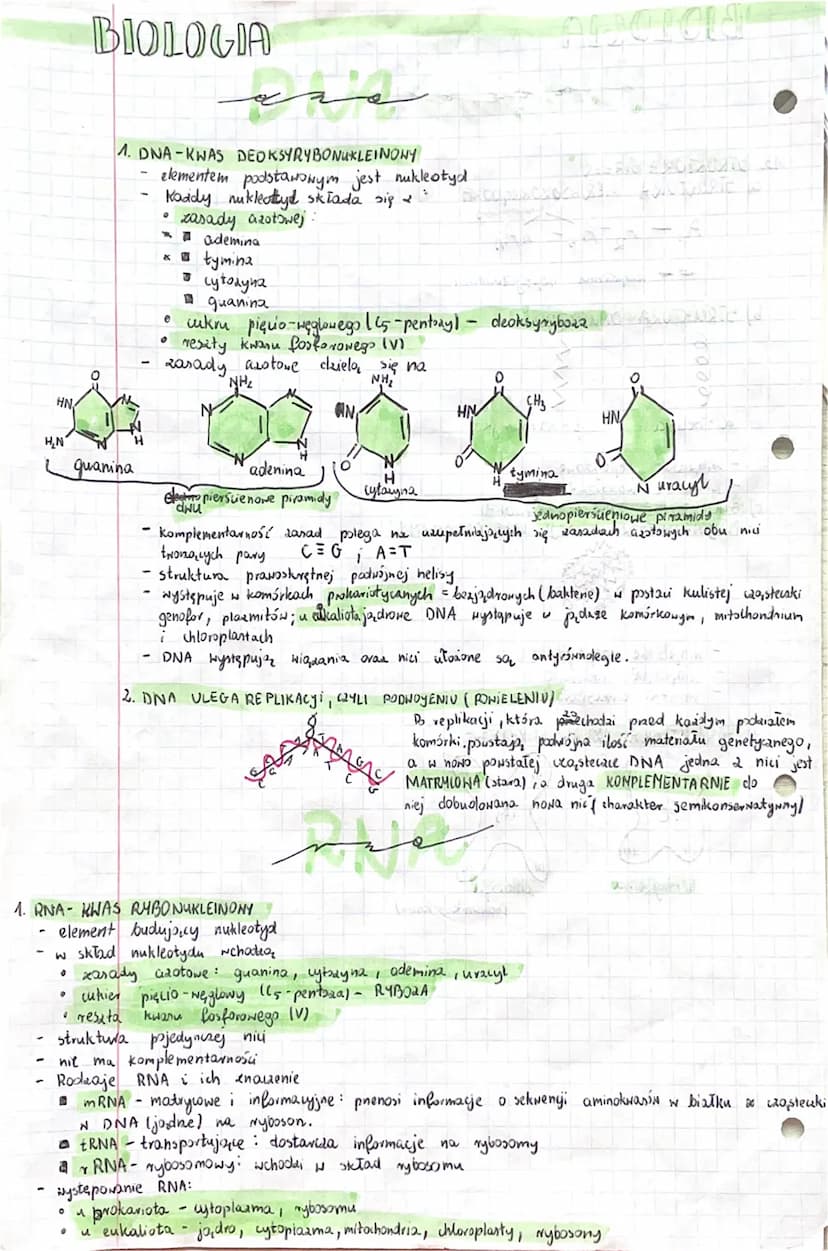 BIOLOGIA
DNA
1. DNA - KWAS DEOKSYRYBONUKLEINOWY
- elementem podstawowym jest nukleotyd
- Każdy nukleotyd składa się z:
• zasady azotowej:
* ▪ ademina
* ▪ tymina
▪ cytozyna
▪ guanina
• cukru pięcio-węglowego (C5-pentozy) - deoksyryboza
• reszty kwasu fosforowego (V)
- zasady azotowe dzielą się na
O NH2 NH2 O O
HN N N N N HN CH3 HN
H2N N N H N N H O N H O N H O N
guanina adenina cytozyna tymina uracyl
dwu pierścienowe piramidy
jednopierścieniowe piramidy
- komplementarność zasad polega na uzupełniających się zasadach azotowych obu nici
tworzących pary C≡G ; A=T
- struktura prawoskrętnej podwójnej helisy
- występuje w komórkach prokariotycznych = bezjądrowych (bakterie) w postaci kulistej cząsteczki
genofor, plazmitów; u ałkaliota jądrowe DNA występuje w jądrze komórkowym, mitochondrium
i chloroplastach
- DNA występują wiązania oraz nici ułożone są antyrównolegle.
2. DNA ULEGA REPLIKACJI, CZYLI PODWOJENIU (POWIELENIU)
Po replikacji, która zachodzi przed każdym podziałem
komórki. powstają podwójna ilość materiału genetycznego,
a w nowo powstałej cząsteczce DNA jedna z nici jest
MATRYCOWA (stara), a druga KOMPLEMENTARNIE do
niej dobudowana nowa nić (charakter semikonserwatywny)
RNA
1. RNA - KWAS RYBONUKLEINOWY
- element budujący nukleotyd
- w skład nukleotydu wchodzą
• zasady azotowe: guanina, cytozyna, ademina, uracyl
• cukier pięcio-węglowy (C5-pentoza) - RYBOZA
• reszta kwasu fosforowego (V)
- struktura pojedynczej nici
- nie ma komplementarności
- Rodzaje RNA i ich znaczenie
▪ mRNA - matrycowe i informacyjne: przenosi informacje o sekwencji aminokwasów w białku ze cząsteczki
w DNA (jądrze) na rybosom.
▪ tRNA - transportujące: dostarcza informacje na rybosomy
▪ rRNA - rybosomowy: wchodzi w skład rybosomu
- występowanie RNA:
• u prokariota - cytoplazma, rybosomu
• u eukaliota - jądro, cytoplazma, mitochondria, chloroplasty, rybosony